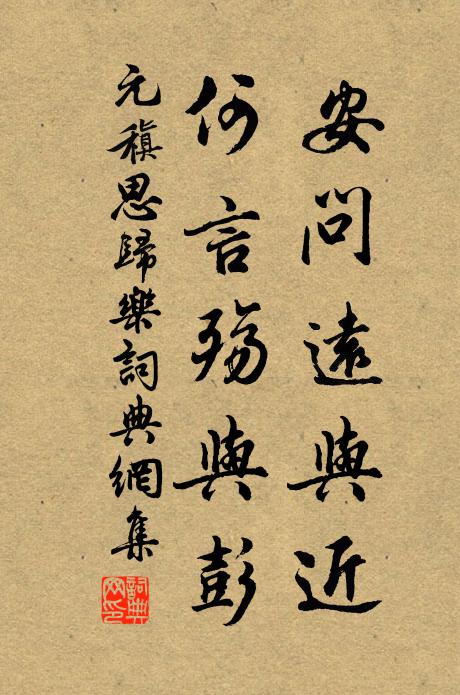 安問遠與近
何言殤與彭
元稹思歸樂詞典網集
詞典
網印